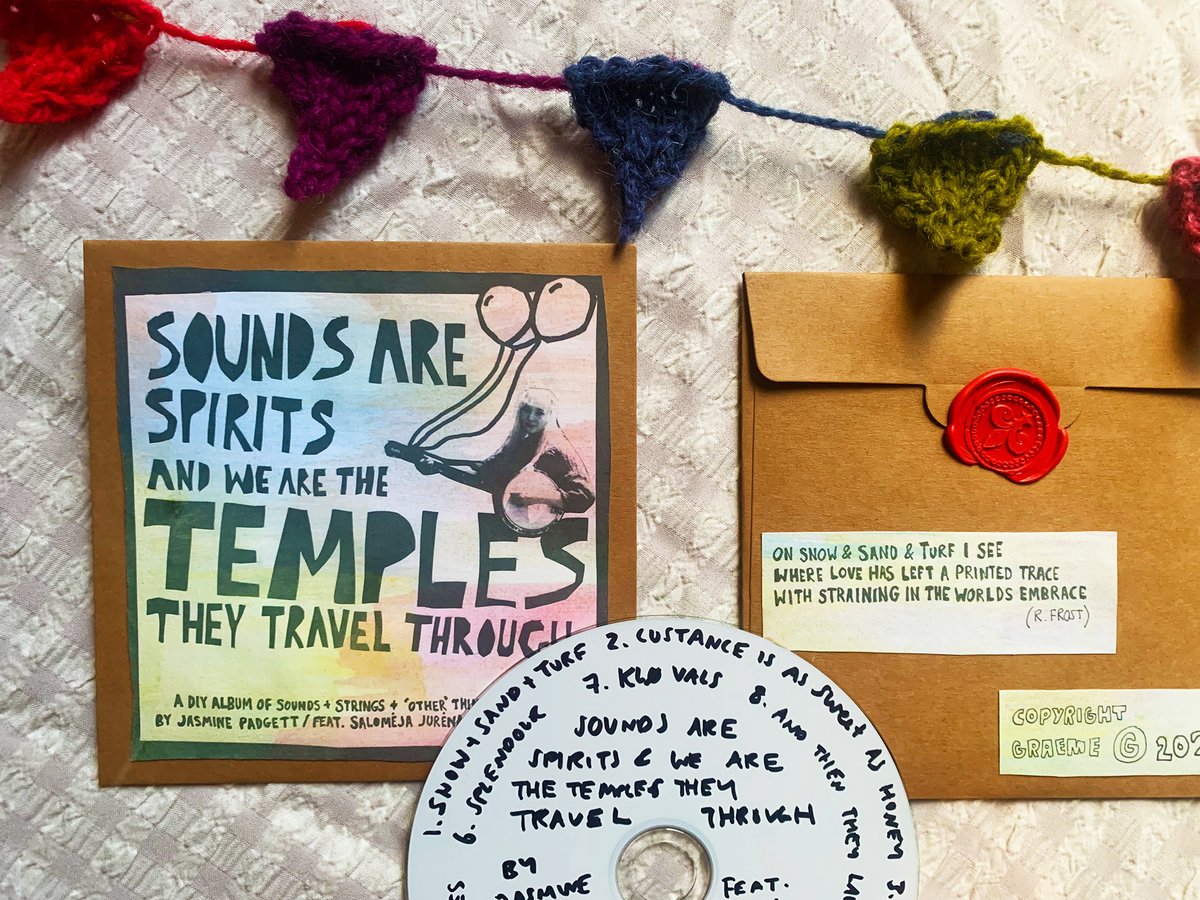 SOUNDS ARE
SPIRITS
AND WE ARE THE
TEMPLES
THEY TRAVEL THROUGH
A DIY ALBUM OF SOUNDS + STRINGS + "OTHER"
BY JASMINE PADGETT / FEAT. SALOMĖJA
ON SNOW & SAND & TURF I SEE
WHERE LOVE HAS LEFT A PRINTED TRACE
WITH STRAINING IN THE WORLDS EMBRACE
(R. FROST)
COPYRIGHT
GRAEME ©
1. SNOW + SAND + TURF 2. CUSTANCE IS AS SWEET AS HONEY 3.
6. SPLENDOUR 7. KLØVALS 8. AND THEN THEY
SOUNDS ARE
SPIRITS & WE ARE
THE TEMPLES THEY
TRAVEL THROUGH
BY
JASMINE FEAT.